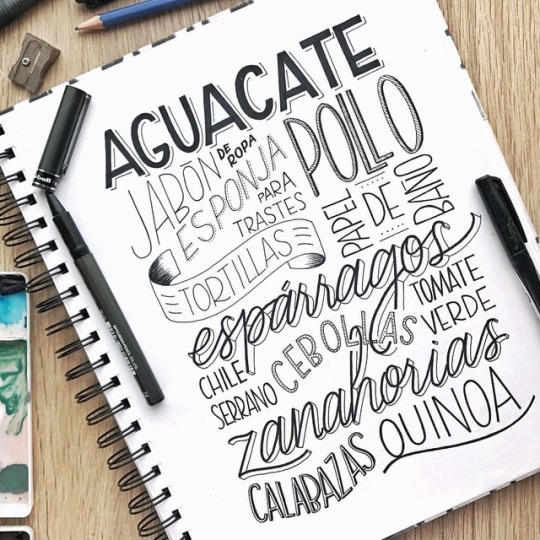 AGUACATE
JABÓN
DE
ROPA
ESPONJA
PARA
TRASTES
POLLO
TORTILLAS
PAPEL
DE
BAÑO
espárragos
CHILE
SERRANO
CEBOLLAS
TOMATE
VERDE
zanahorias
CALABAZAS
QUINOA